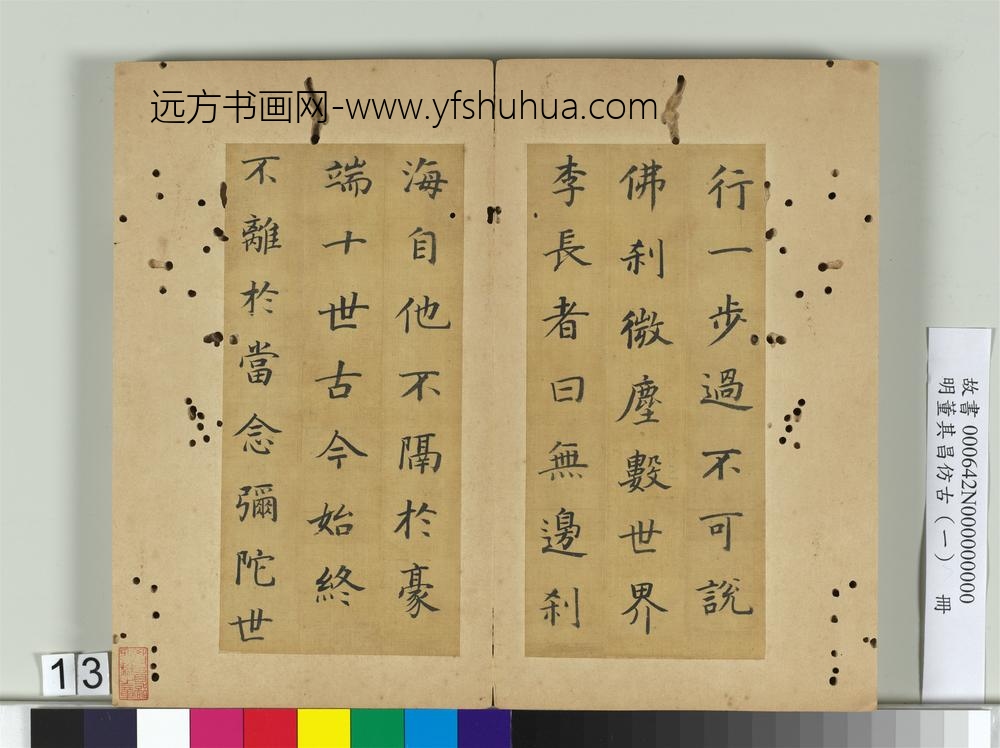 远方书画网-www.yfshuhua.com
行一步過不可說
佛刹微塵數世界
李長者曰無邊刹
海自他不隔於豪
端十世古今始終
不離於當念彌陀世
故書 000642N000000000
明董其昌仿古(一) 冊
13